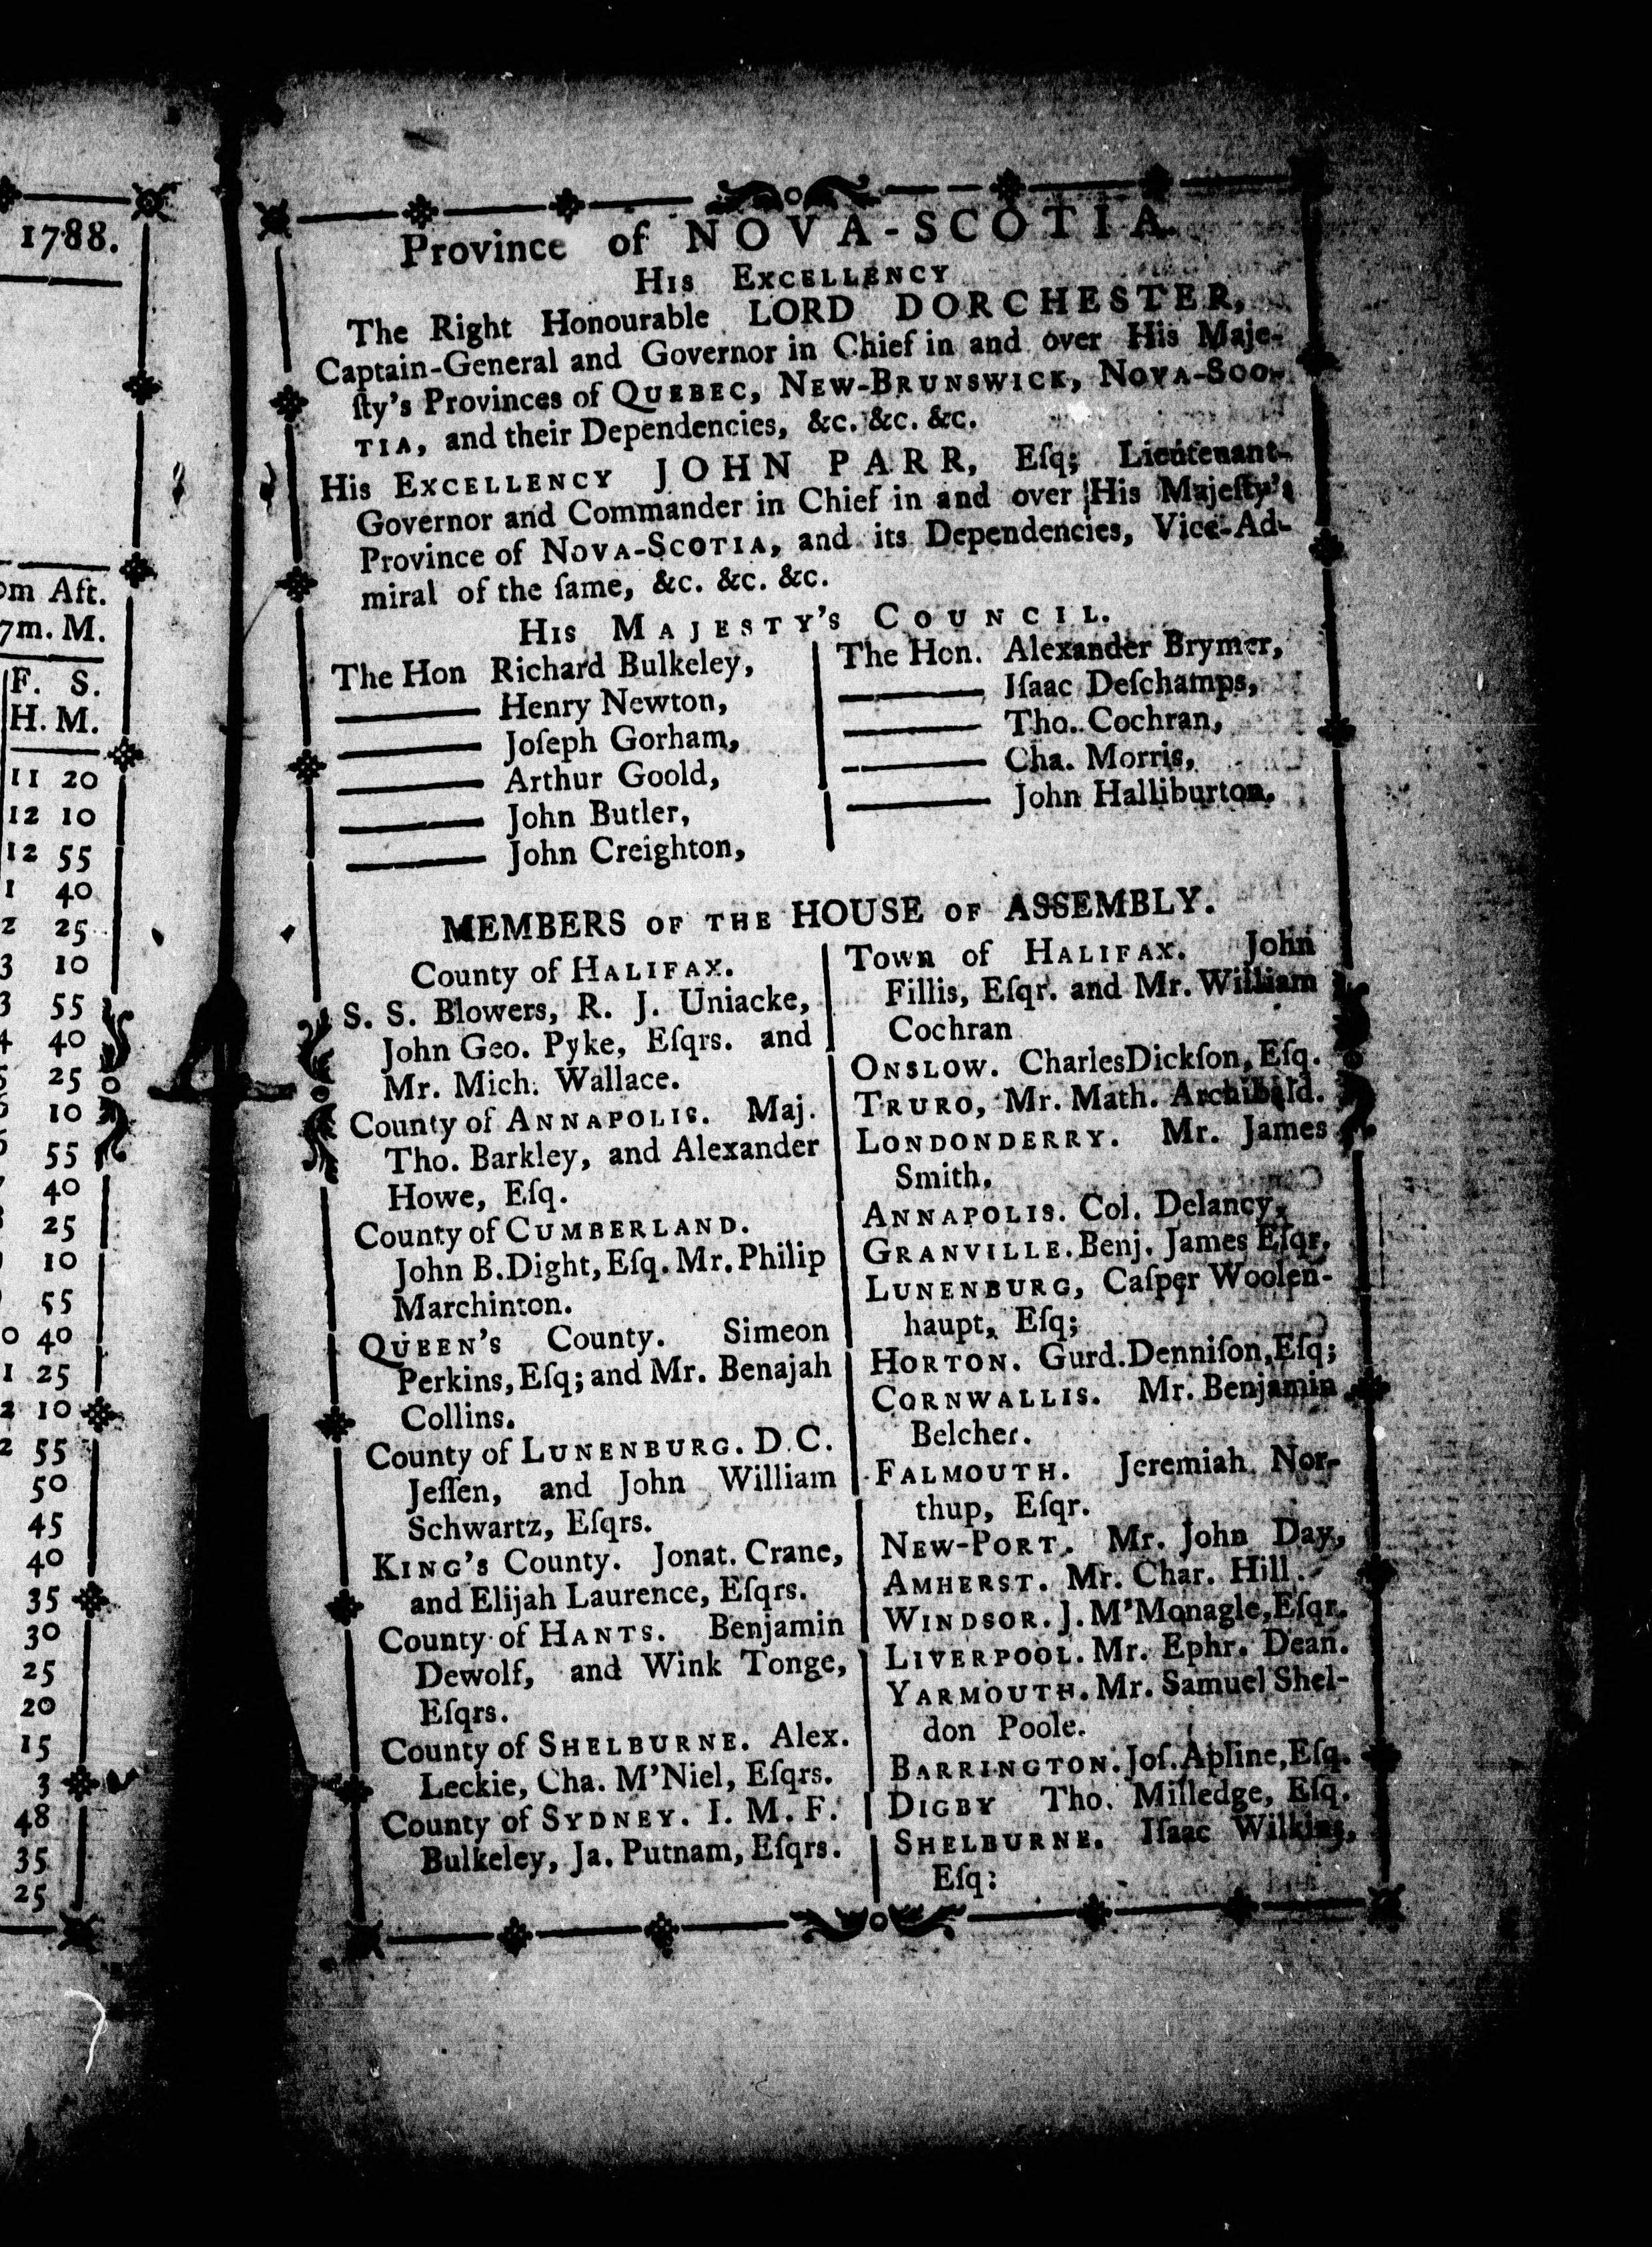 1788.
Aft.
7m. M.
F. S.
H. M.
11 20
12 10
12 55
1 40
2 25
3 10
3 55
4 40
5 25
10
55
40
25
10
55
0 40
1 25
2 10
2 55
50
45
40
35
30
25
20
15
3
48
35
25
Province of NOVA-SCOTIA.
His Excellency
The Right Honourable LORD DORCHESTER,
Captain-General and Governor in Chief in and over His Maje-
ſty's Provinces of Quebec, New-Brunswick, Nova-Sco-
tia, and their Dependencies, &c. &c. &c.
His Excellency JOHN PARR, Eſq; Lieutenant-
Governor and Commander in Chief in and over His Majeſty's
Province of Nova-Scotia, and its Dependencies, Vice-Ad-
miral of the ſame, &c. &c. &c.
His Majesty's Council.
The Hon Richard Bulkeley,
——— Henry Newton,
——— Joſeph Gorham,
——— Arthur Goold,
——— John Butler,
——— John Creighton,
The Hon. Alexander Brymer,
——— Iſaac Deſchamps,
——— Tho. Cochran,
——— Cha. Morris,
——— John Halliburton.
MEMBERS OF THE HOUSE OF ASSEMBLY.
County of Halifax.
S. S. Blowers, R. J. Uniacke,
John Geo. Pyke, Eſqrs. and
Mr. Mich. Wallace.
County of Annapolis. Maj.
Tho. Barkley, and Alexander
Howe, Eſq.
County of Cumberland.
John B. Dight, Eſq. Mr. Philip
Marchinton.
Queen's County. Simeon
Perkins, Eſq; and Mr. Benajah
Collins.
County of Lunenburg. D. C.
Jeſſen, and John William
Schwartz, Eſqrs.
King's County. Jonat. Crane,
and Elijah Laurence, Eſqrs.
County of Hants. Benjamin
Dewolf, and Wink Tonge,
Eſqrs.
County of Shelburne. Alex.
Leckie, Cha. M'Niel, Eſqrs.
County of Sydney. I. M. F.
Bulkeley, Ja. Putnam, Eſqrs.
Town of Halifax. John
Fillis, Eſqr. and Mr. William
Cochran
Onslow. Charles Dickſon, Eſq.
Truro, Mr. Math. Archibald.
Londonderry. Mr. James
Smith.
Annapolis. Col. Delancy,
Granville. Benj. James Eſqr.
Lunenburg, Caſper Woolen-
haupt, Eſq;
Horton. Gurd. Denniſon, Eſq;
Cornwallis. Mr. Benjamin
Belcher.
Falmouth. Jeremiah Nor-
thup, Eſqr.
New-Port. Mr. John Day,
Amherst. Mr. Char. Hill.
Windsor. J. M'Monagle, Eſqr.
Liverpool. Mr. Ephr. Dean.
Yarmouth. Mr. Samuel Shel-
don Poole.
Barrington. Joſ. Apline, Eſq.
Digby Tho. Milledge, Eſq.
Shelburne. Iſaac Wilkins,
Eſq: